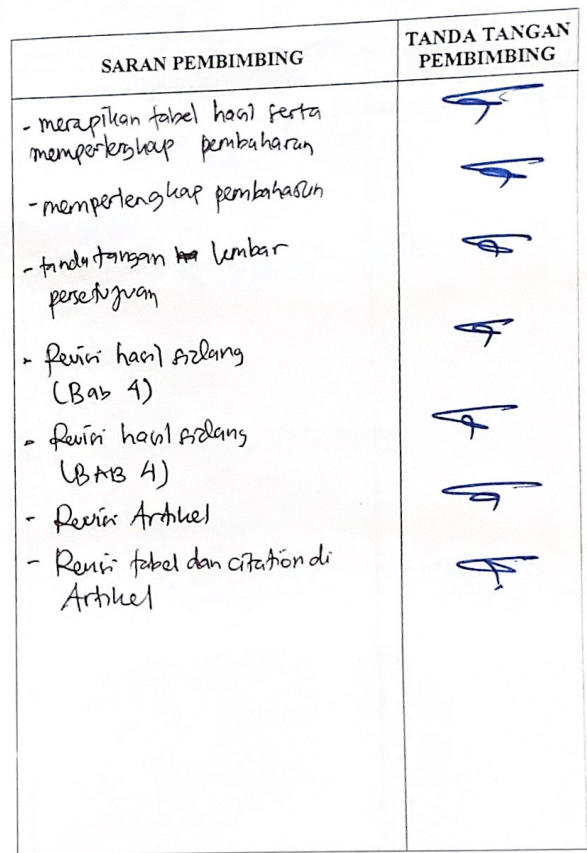 SARAN PEMBIMBING
TANDA TANGAN
PEMBIMBING
- merapikan tabel hasil serta
memperlengkap pembahasan
- memperlengkap pembahasan
- tanda tangan lembar
persetujuan
- Revisi hasil sidang
(Bab 4)
- Revisi hasil sidang
(BAB 4)
- Revisi Artikel
- Revisi tabel dan citation di
Artikel